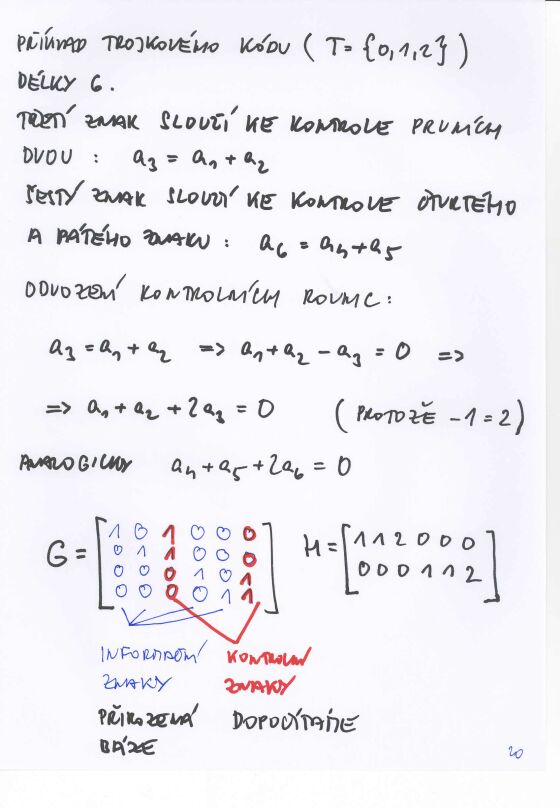 PŘÍKLAD TROJKOVÉHO KÓDU ( T = {0,1,2} )
DÉLKY 6.
TŘETÍ ZNAK SLOUŽÍ KE KONTROLE PRVNÍCH
DVOU : a3 = a1 + a2
ŠESTÝ ZNAK SLOUŽÍ KE KONTROLE ČTVRTÉHO
A PÁTÉHO ZNAKU : a6 = a4 + a5
ODVOZENÍ KONTROLNÍCH ROVNIC :
a3 = a1 + a2 => a1 + a2 - a3 = 0 =>
=> a1 + a2 + 2a3 = 0 ( PROTOŽE -1 = 2 )
ANALOGICKY a4 + a5 + 2a6 = 0
G = [ 1 0 1 0 0 0
0 1 1 0 0 0
0 0 0 1 0 1
0 0 0 0 1 1 ]
H = [ 1 1 2 0 0 0
0 0 0 1 1 2 ]
INFORMAČNÍ
ZNAKY
KONTROLNÍ
ZNAKY
PŘIROZENÁ
BÁZE
DOPOČÍTÁME
20